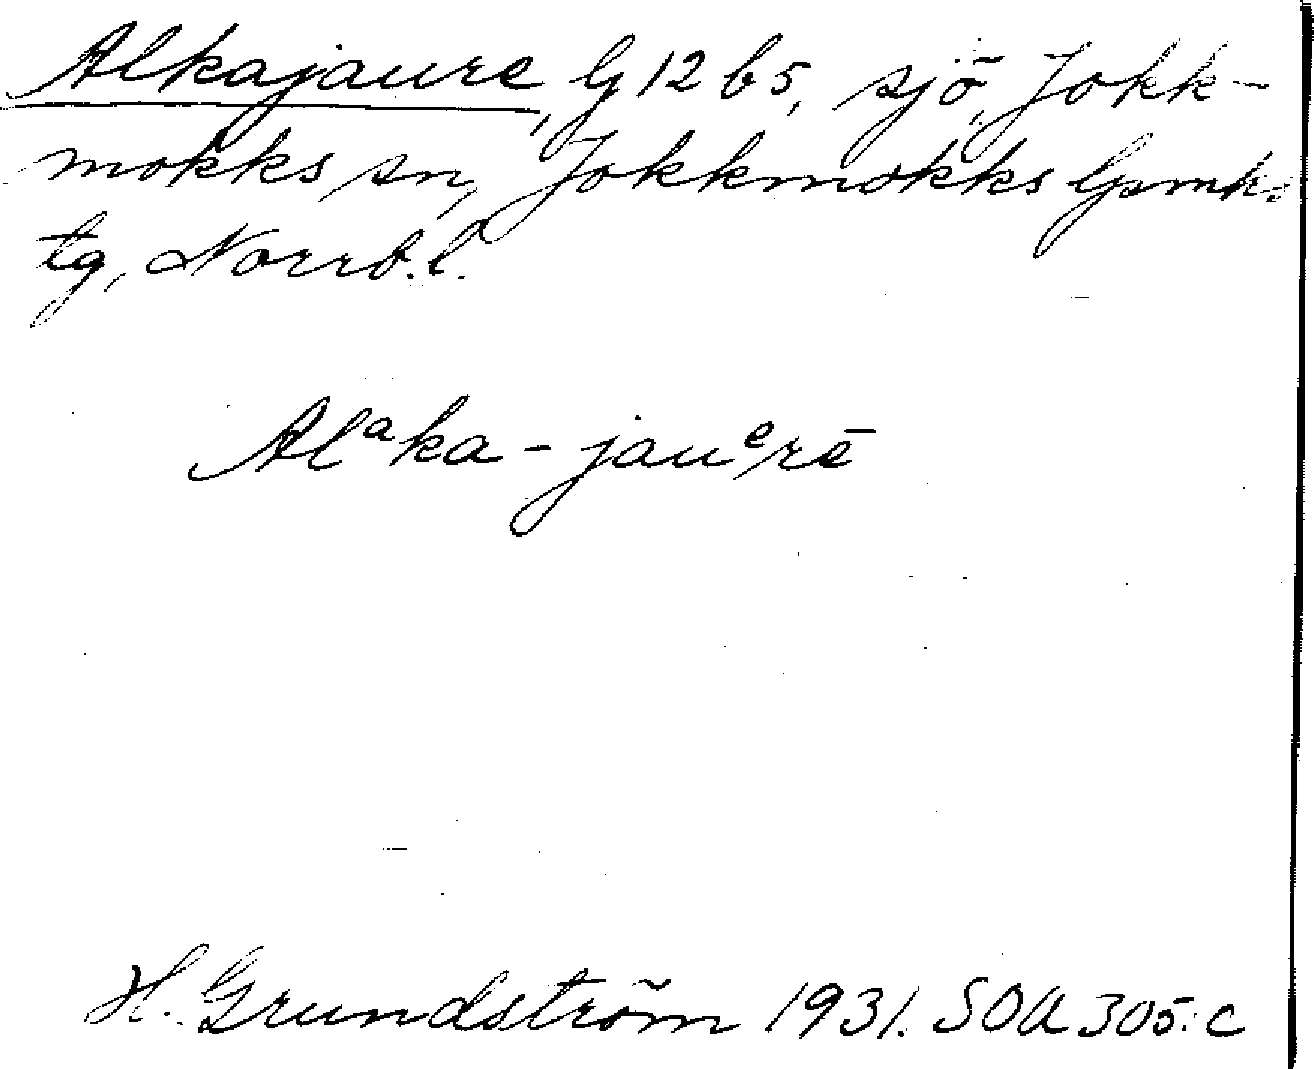 Alkajaure, G 12 b 5, sjö, Jokk-
mokks sn, Jokkmokks lpmks
tg, Norrb. l.
Alᵃka-jauᵉrē
H. Grundström 1931. SOA 305:c